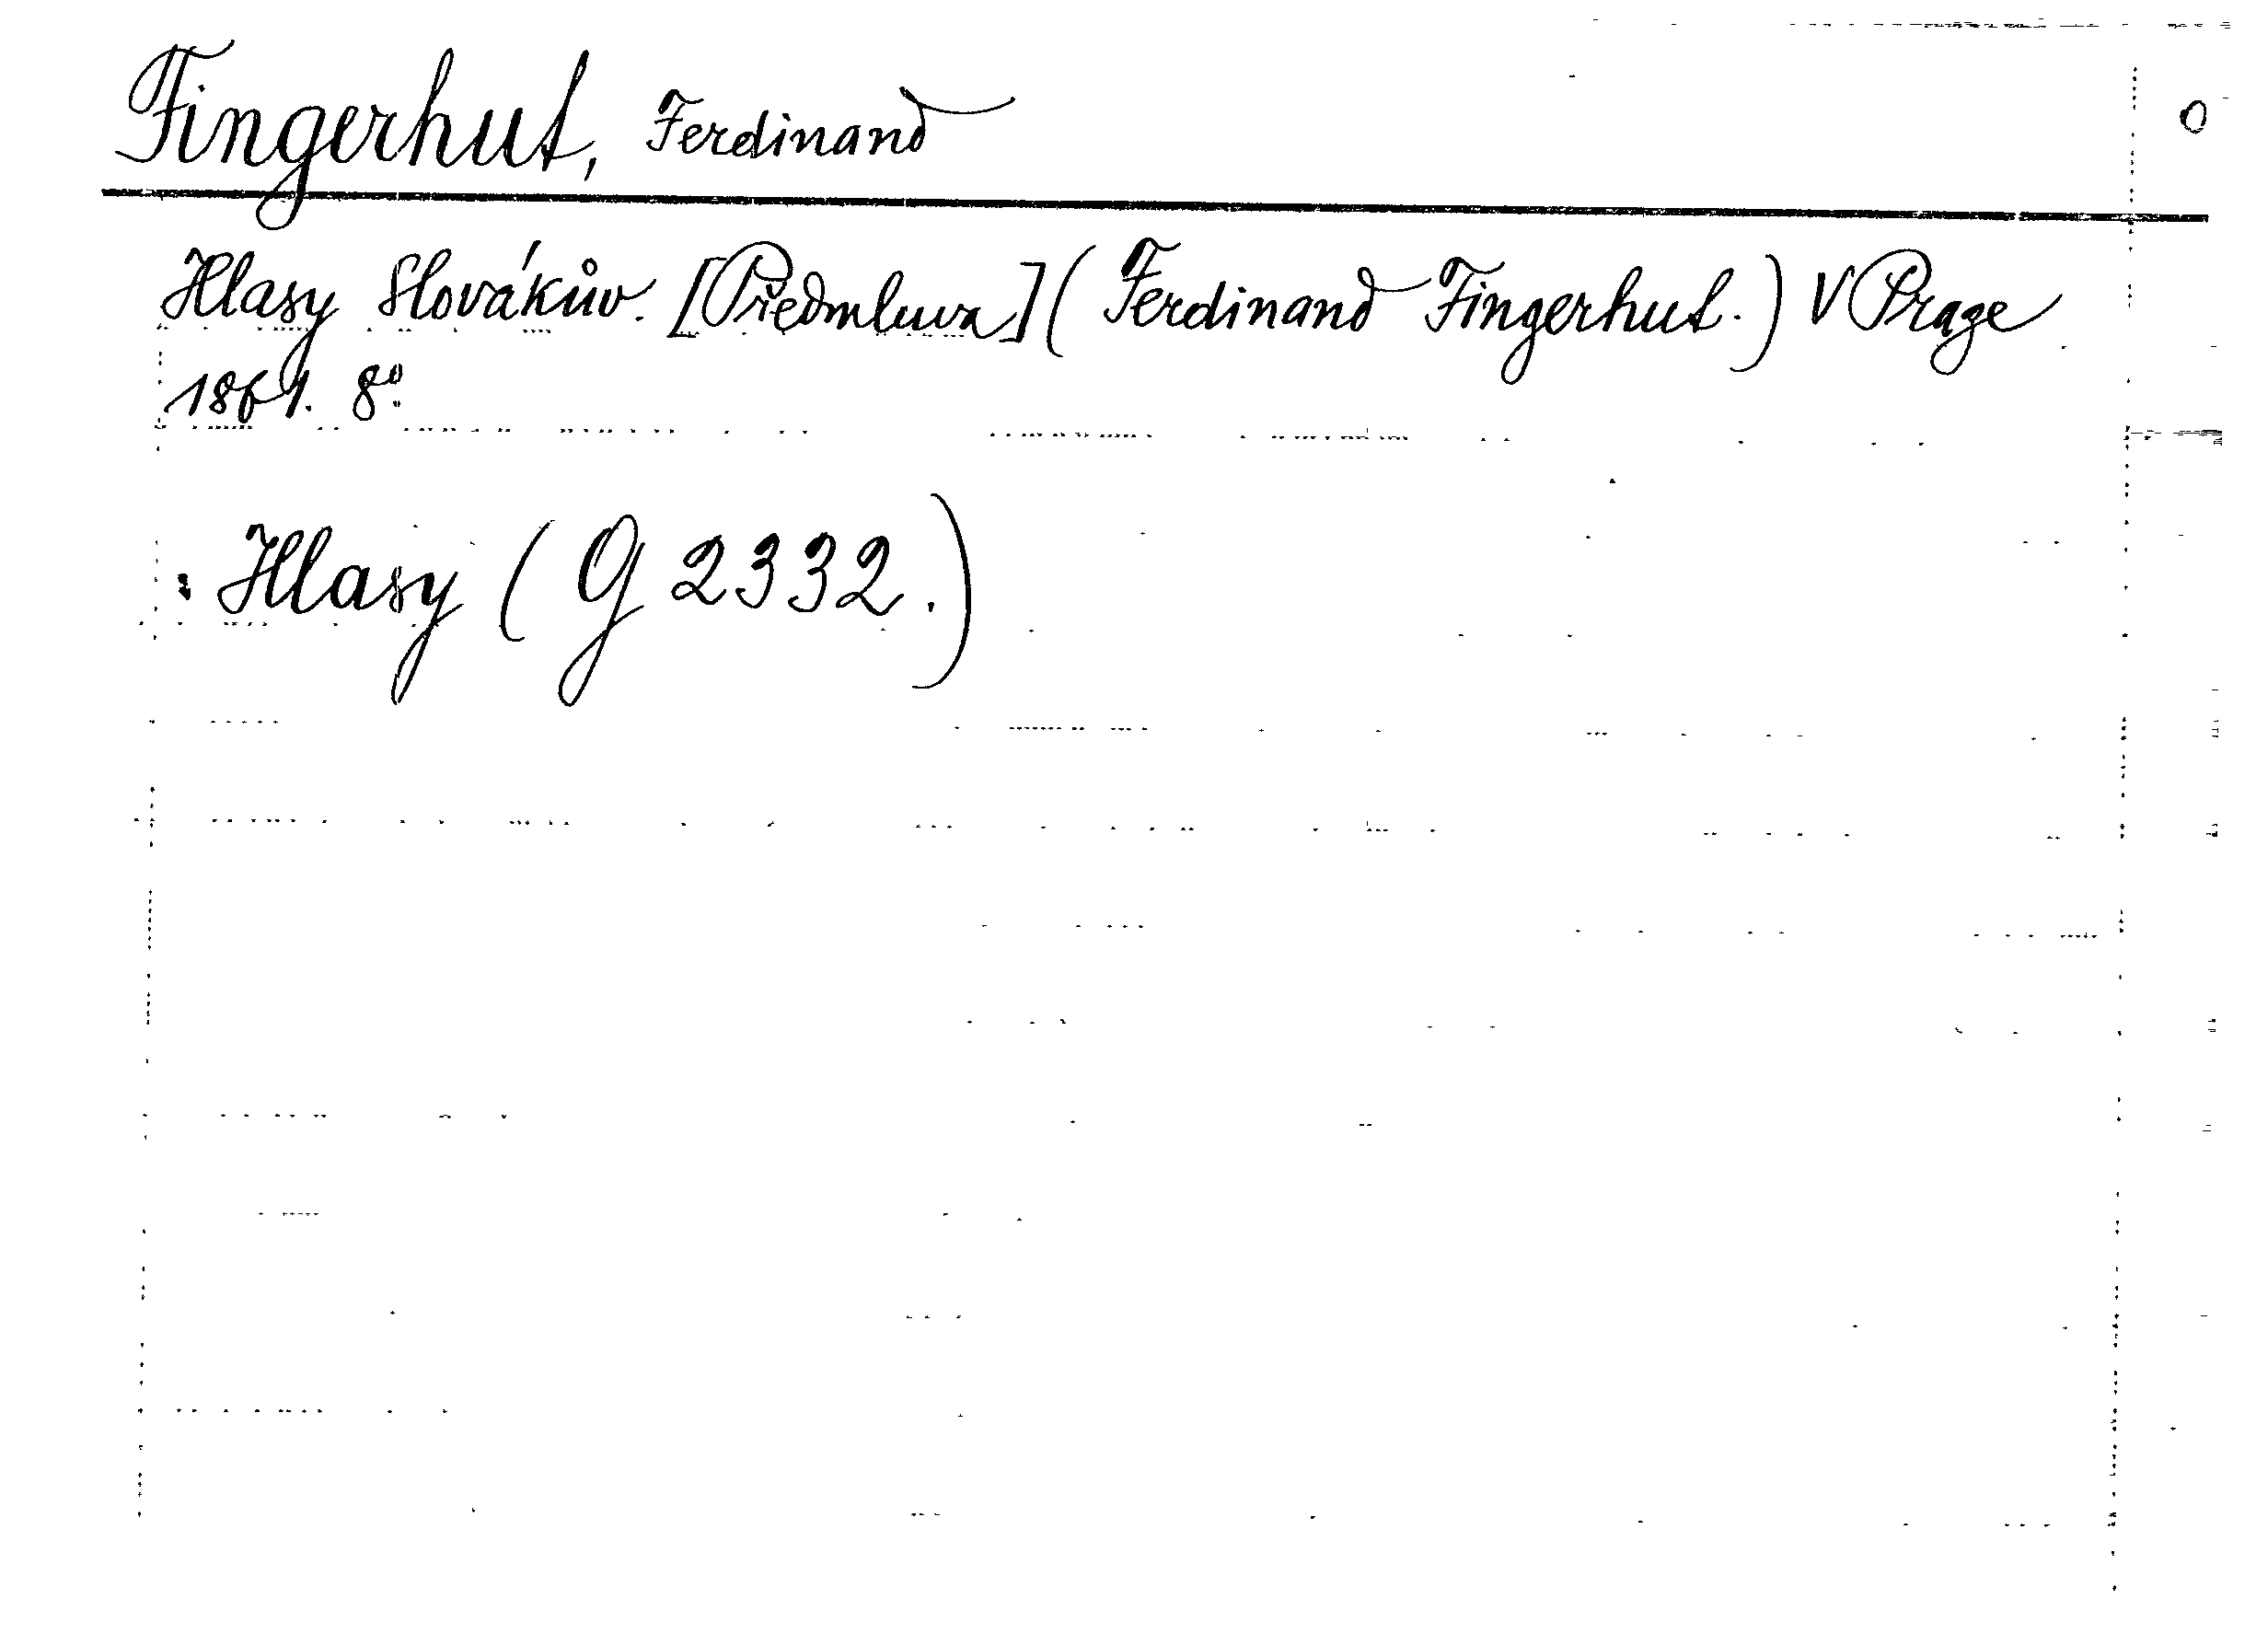 Fingerhut, Ferdinand 0
Hlasy Slovákův. [Předmluva] (Ferdinand Fingerhut.) V Praze
1861. 8°.
: Hlasy (G 2332.)